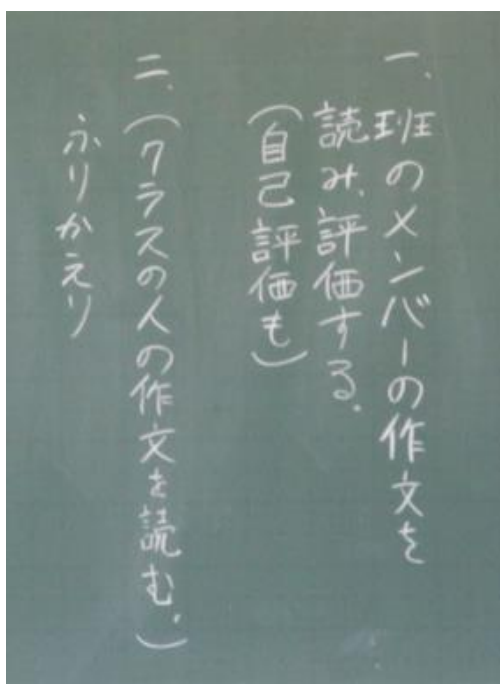 一、班のメンバーの作文を
読み、評価する。
(自己評価も)
二、(クラスの人の作文を読む。)
ふりかえり